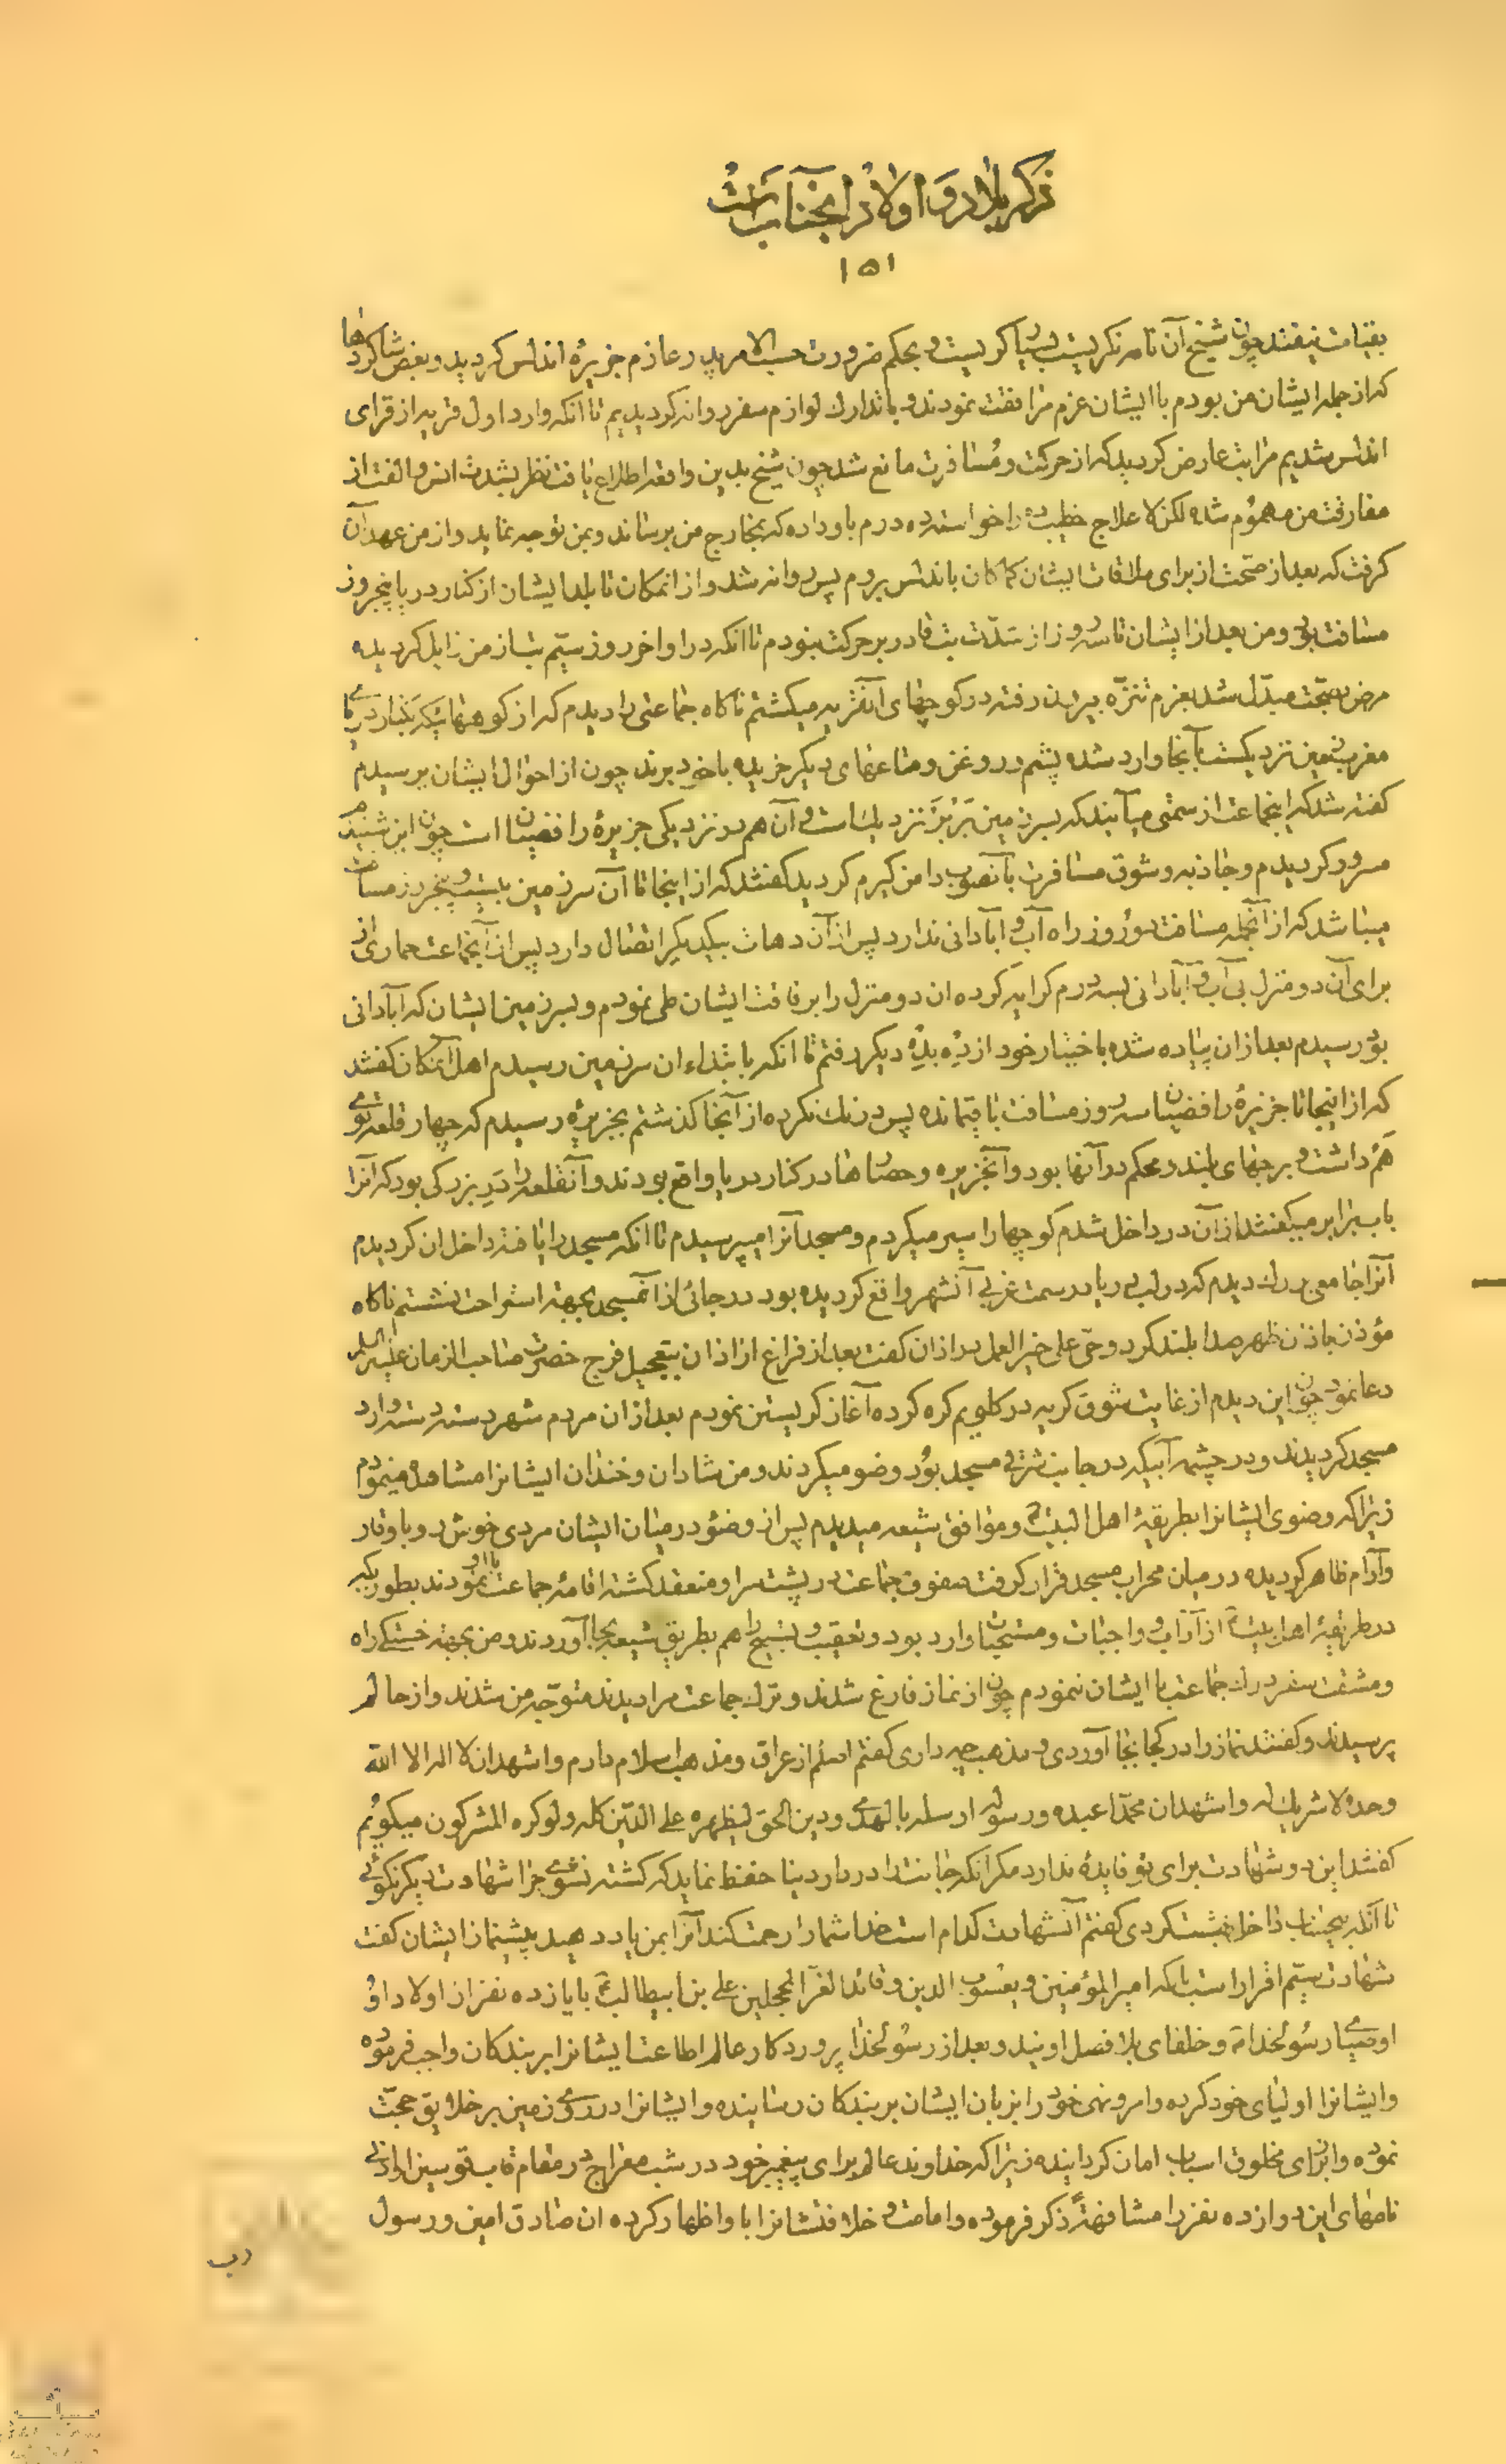 ذکر بلاد و اولاد آنجناب است
۱۵۱
بقیامت نیفتند چون شیخ آن نامه نگریست بسیار گریست و بحکم ضرورت حسب الامر پدر عازم جزیرهٔ اندلس گردید و بعضی شاگردها
که از جمله ایشان من بودم با ایشان عزم مرافقت نمودند و با تدارک لوازم سفر روانه گردیدیم تا آنکه وارد اول قریه از قرای
اندلس شدیم مرا تب عارض گردید که از حرکت و مسافرت مانع شد چون شیخ بدین واقعه اطلاع یافت نظر بشدت انس و الفت از
مفارقت من مهموم شده لکن لاعلاج خطیب ده را خواسته ده درم باو داده که بمخارج من برساند و بمن توجه نماید و از من عهد آن
گرفت که بعد از صحت از برای ملاقات ایشان کماکان باندلس بروم پس روانه شد و از انمکان تا بلد ایشان از کنار دریا پنجروز
مسافت بود و من بعد از ایشان تا سه روز از شدّت تب قادر بر حرکت نبودم تا انکه در اواخر روز سیّم تب از من زایل گردیده
مرض بصحّت مبدّل شد بعزم تنزّه بیرون رفته در کوچهای آنقریه میگشتم ناگاه جماعتی را دیدم که از کوههائیکه بکنار دریای
مغربزمین نزدیکست بآنجا وارد شده پشم و روغن و متاعهای دیگر خریده با خود برند چون از احوال ایشان پرسیدم
گفته شد که اینجماعت از سمتی میآیند که بسرزمین بَربَر نزدیک است و آن هم در نزدیکی جزیرهٔ رافضیان است چون این شنیدم
مسرور گردیدم و جاذبه و شوق مسافرت بآنصوب دامن گیرم گردید گفتند که از اینجا تا آن سرزمین بیست و پنجروز مسافت
میباشد که از آنجمله مسافت دو روز راه آب و آبادانی ندارد پس از آن دهات بیکدیگر اتصال دارد پس از آنجماعت حماری از
برای آن دو منزل بی آب و آبادانی بسه درم کرایه کرده ان دو منزل را برفاقت ایشان طی نمودم و بسرزمین ایشان که آبادانی
بود رسیدم بعد ازان پیاده شده باختیار خود از دِه بدِه دیگر رفتم تا انکه بابتداء ان سرزمین رسیدم اهل آنمکان گفتند
که از اینجا تا جزیرهٔ رافضیان سه روز مسافت باقیمانده پس درنک نکرده از آنجا گذشتم بجزیره رسیدم که چهار قلعه توی
هم داشت و برجهای بلند و محکم در آنها بود و آنجزیره و حصارها در کنار دریا واقع بودند و آنقلعه را دَرِ بزرگی بود که آنرا
باب بربر میگفتند از آن در داخل شدم کوچها را سیر میکردم و مسجد آنرا میپرسیدم تا انکه مسجد را یافته داخل ان گردیدم
آنرا جامعی بزرک دیدم که در لب دریا در سمت غربی آنشهر واقع گردیده بود در جائی از آنمسجد بجهة استراحت نشستم ناگاه
مؤذن باذان ظهر صدا بلند کرد و حی علی خیر العمل در اذان گفت بعد از فراغ از اذان بتعجیل فرج حضرت صاحب الزمان علیه السلام
دعا نمود چون این دیدم از غایت شوق گریه در کلویم گره کرده آغاز گریستن نمودم بعد ازان مردم شهر دسته دسته وارد
مسجد گردیدند و در چشمه آبیکه در جانب شرقی مسجد بود وضو میکردند و من شادان و خندان ایشانرا مشاهده مینمودم
زیرا که وضوی ایشانرا بطریقهٔ اهل البیت و موافق شیعه میدیدم پس از وضو در میان ایشان مردی خوشرو و باوقار
و آرام ظاهر گردیده در میان محراب مسجد قرار گرفت صفوف جماعت در پشت سر او منعقد گشته اقامهٔ جماعت با او نمودند بطوریکه
در طریقهٔ اهل بیت از آداب و واجبات و مستحبات وارد بود و تعقیب و تسبیح را هم بطریق شیعه بجا آوردند و من بجهة خستگی راه
و مشقت سفر درک جماعت با ایشان ننمودم چون از نماز فارغ شدند و ترک جماعت مرا دیدند متوجّه من شدند و از حالم
پرسیدند و گفتند نماز را در کجا بجا آوردی و مذهب چه داری گفتم اصلم از عراق و مذهب اسلام دارم و اشهد ان لا اله الا الله
وحده لا شریک له و اشهد ان محمّدا عبده و رسوله ارسله بالهدی و دین الحق لیظهره علی الدّین کله و لو کره المشرکون میگویم
گفتند این دو شهادت برای تو فایده ندارد مگر انکه جانت را در دار دنیا حفظ نماید که کشته نشوی چرا شهادت دیگر نگوئی
تا آنکه بیحساب داخل بهشت گردی گفتم آنشهادت کدام است خدا شما را رحمت کند آنرا بمن یاد دهید پیشنماز ایشان گفت
شهادت سیّم اقرار است باینکه امیر المؤمنین و یعسوب الدین و قائد الغر المحجلین علی بن ابیطالب با یازده نفر از اولاد او
اوصیای رسولخدا و خلفای بلا فصل اویند و بعد از رسولخدا پروردگار عالم اطاعت ایشانرا بر بندگان واجب فرموده
و ایشانرا اولیای خود کرده و امر و نهی خود را بزبان ایشان بر بندگان رسانیده و ایشانرا در روی زمین بر خلایق حجّت
نموده و از برای مخلوق اسباب امان گردانیده زیرا که خداوند عالم برای پیغمبر خود در شب معراج در مقام قاب قوسین او ادنی
نامهای این دوازده نفر را مشافهةً ذکر فرموده و امامت و خلافتشانرا باو اظهار کرده ان صادق امین و رسول
رب